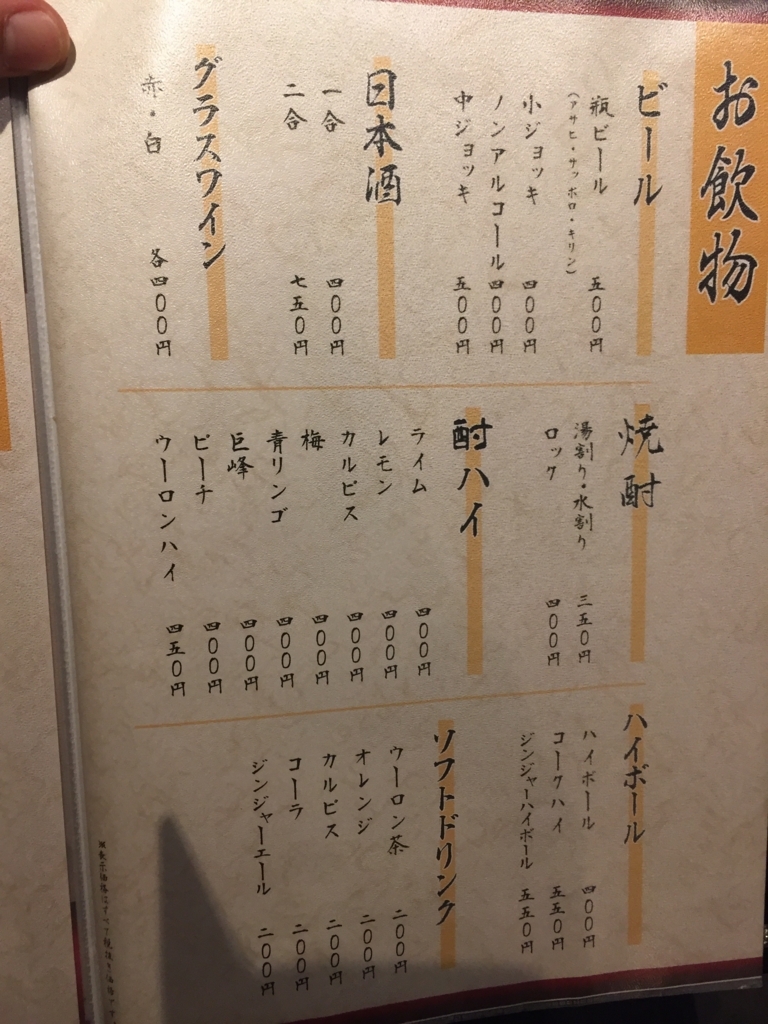 お飲物
ビール
瓶ビール 五〇〇円
(アサヒ・サッポロ・キリン)
小ジョッキ 四〇〇円
ノンアルコール 四〇〇円
中ジョッキ 五〇〇円
日本酒
一合 四〇〇円
二合 七五〇円
グラスワイン
赤・白 各四〇〇円
焼酎
湯割り・水割り 三五〇円
ロック 四〇〇円
酎ハイ
ライム 四〇〇円
レモン 四〇〇円
カルピス 四〇〇円
梅 四〇〇円
青リンゴ 四〇〇円
巨峰 四〇〇円
ピーチ 四〇〇円
ウーロンハイ 四五〇円
ハイボール
ハイボール 四〇〇円
コークハイ 五五〇円
ジンジャーハイボール 五五〇円
ソフトドリンク
ウーロン茶 二〇〇円
オレンジ 二〇〇円
カルピス 二〇〇円
コーラ 二〇〇円
ジンジャーエール 二〇〇円
※表示価格はすべて税抜き価格です